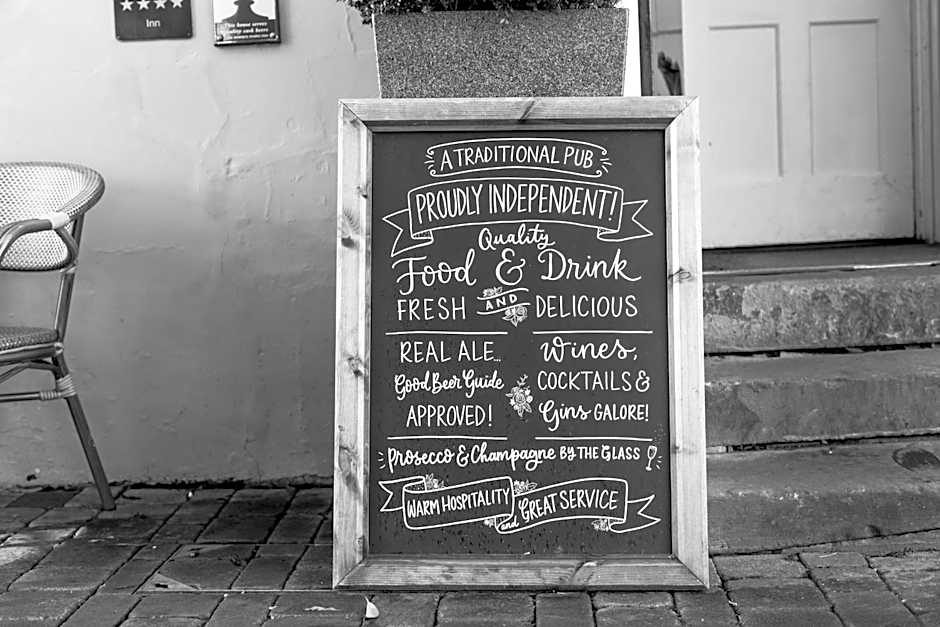 ★★★★
Inn
This house serves
quality cask beers
A TRADITIONAL PUB
PROUDLY INDEPENDENT!
Quality
Food & Drink
FRESH AND DELICIOUS
REAL ALE...
Good Beer Guide
APPROVED!
Wines,
COCKTAILS &
Gins GALORE!
Prosecco & Champagne BY THE GLASS
WARM HOSPITALITY and GREAT SERVICE